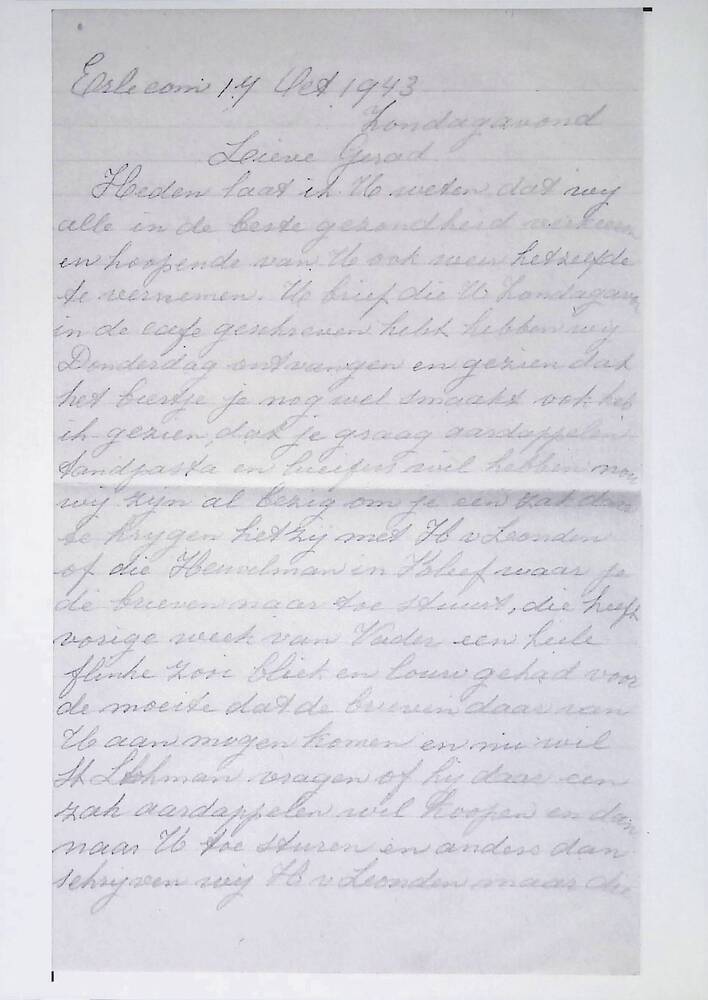 Erlecom 17 Oct 1943
Zondagavond
Lieve Gerad
Heden laat ik U weten dat wij
alle in de beste gezondheid verkeeren
en hoopende van U ook weer hetzelfde
te vernemen. U brief die U Zondagavon
in de cafe geschreven hebt hebben wij
Donderdag ontvangen en gezien dat
het biertje je nog wel smaakt ook heb
ik gezien dat je graag aardappelen
tandpasta en lucifers wil hebben nou
wij zijn al bezig om je een zak daar
te krygen hetzij met H v Leonden
of die Heuvelman in Kleef waar je
de brieven naar toe stuurt, die heeft
vorige week van Vader een heele
flinke zooi bliek en louw gehad voor
de moeite dat de brieven daar van
U aan mogen komen en nu wil
vragen of hij daar een
zak aardappelen wil koopen en dan
naar U toe sturen en anders dan
schrijven wij H v Leonden maar die